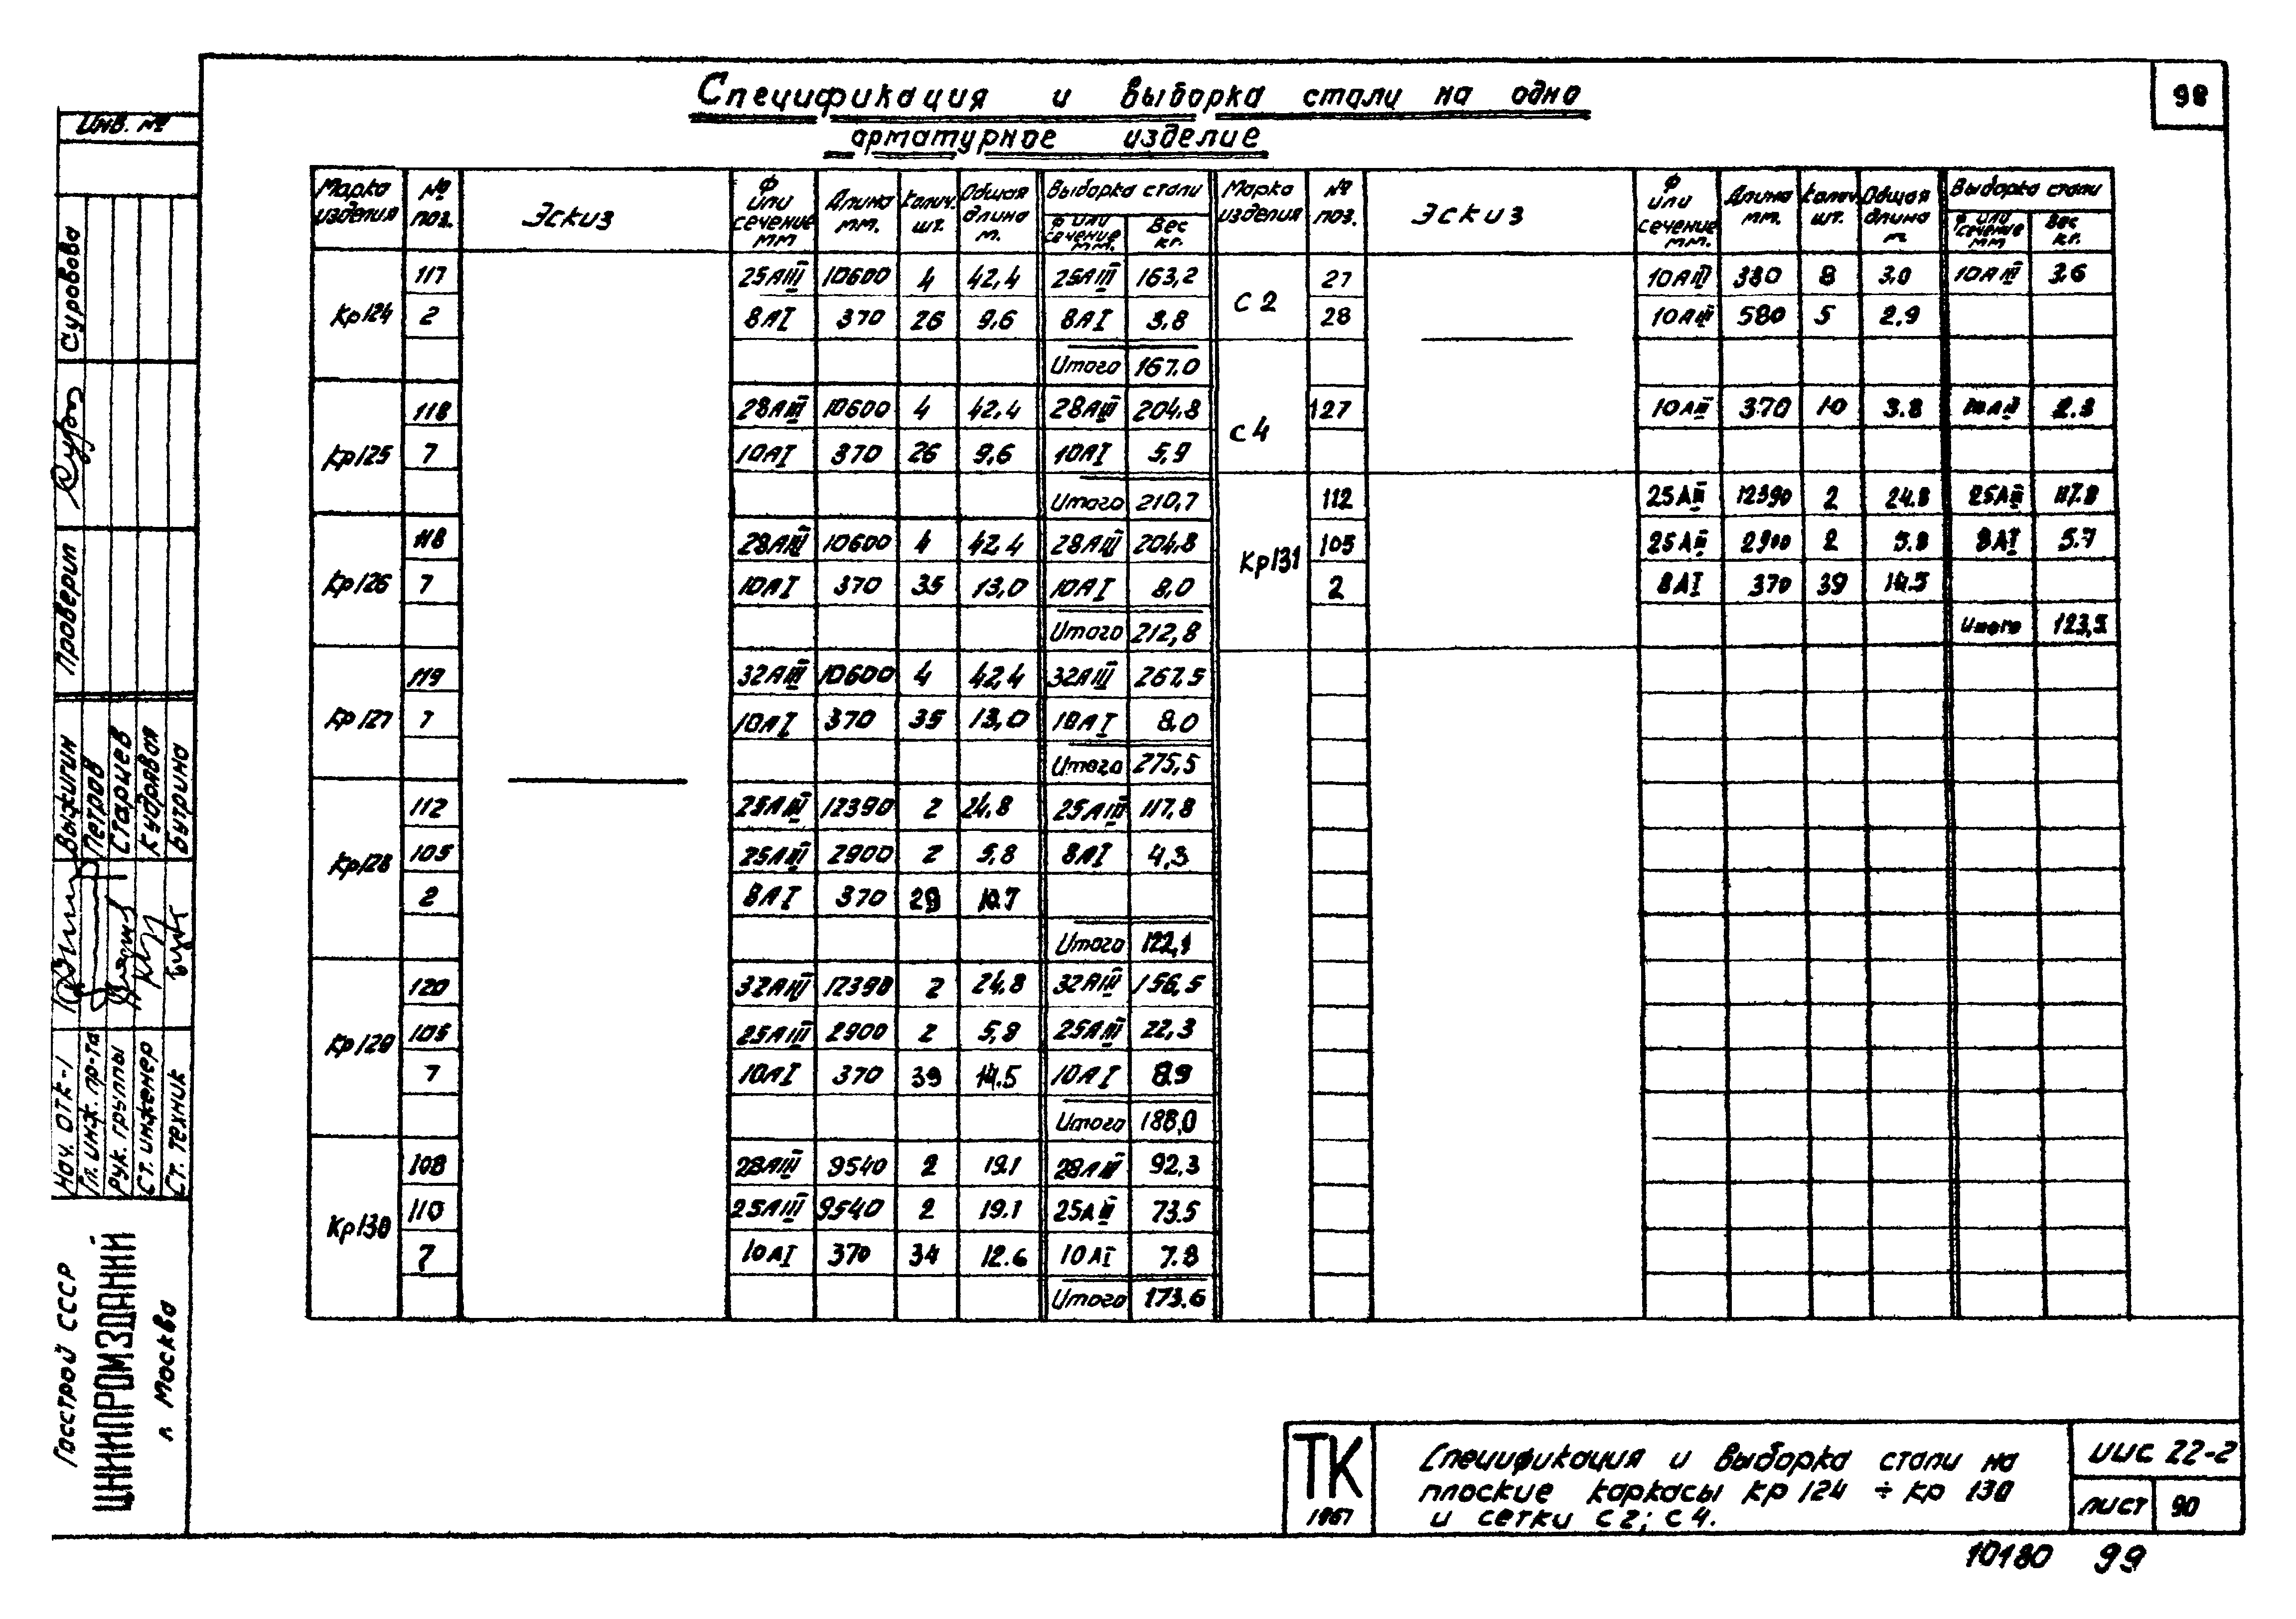 98
Спецификация и выборка стали на одно
арматурное изделие
Инв. №
Марка изделия | № поз. | Эскиз | Ф или сечение мм | Длина мм. | Колич. шт. | Общая длина м. | Выборка стали | Ф или сечение мм. | Вес кг.
Кр124 | 117 | 25АIII | 10600 | 4 | 42,4 | 25АIII | 163,2
2 | 8АI | 370 | 26 | 9,6 | 8АI | 3,8
Итого 167.0
Кр125 | 118 | 28АIII | 10600 | 4 | 42,4 | 28АIII | 204,8
7 | 10АI | 370 | 26 | 9,6 | 10АI | 5,9
Итого 210,7
Кр126 | 118 | 28АIII | 10600 | 4 | 42,4 | 28АIII | 204,8
7 | 10АI | 370 | 35 | 13,0 | 10АI | 8,0
Итого 212,8
Кр127 | 119 | 32АIII | 10600 | 4 | 42,4 | 32АIII | 267,5
7 | 10АI | 370 | 35 | 13,0 | 10АI | 8,0
Итого 275,5
Кр128 | 112 | 25АIII | 12390 | 2 | 24,8 | 25АIII | 117,8
105 | 25АIII | 2900 | 2 | 5,8 | 8АI | 4,3
2 | 8АI | 370 | 29 | 10.7
Итого 122,1
Кр129 | 120 | 32АIII | 12390 | 2 | 24,8 | 32АIII | 156,5
105 | 25АIII | 2900 | 2 | 5,8 | 25АIII | 22,3
7 | 10АI | 370 | 39 | 14.5 | 10АI | 8.9
Итого 188,0
Кр130 | 108 | 28АIII | 9540 | 2 | 19.1 | 28АIII | 92,3
110 | 25АIII | 9540 | 2 | 19.1 | 25АIII | 73.5
7 | 10АI | 370 | 34 | 12.6 | 10АI | 7.8
Итого 173.6
Марка изделия | № поз. | Эскиз | Ф или сечение мм. | Длина мм. | Колич. шт. | Общая длина м | Выборка стали | Ф или сечение мм | Вес кг.
С 2 | 27 | 10АIII | 380 | 8 | 3,0 | 10АIII | 3,6
28 | 10АIII | 580 | 5 | 2.9
С 4 | 127 | 10АIII | 370 | 10 | 3.8 | 10АIII | 2.3
Кр131 | 112 | 25АIII | 12390 | 2 | 24.8 | 25АIII | 117.8
105 | 25АIII | 2900 | 2 | 5.8 | 8АI | 5.7
2 | 8АI | 370 | 39 | 14.5
Итого 123,5
Проверил Суровова
Нач. ОТК-1 Выжигин
Гл. инж. пр-та Петров
Рук. группы Старцев
Ст. инженер Кудрявая
Ст. техник Бутрина
Госстрой СССР
ЦНИИПРОМЗДАНИЙ
г. Москва
ТК
1967
Спецификация и выборка стали на
плоские каркасы кр 124 ÷ кр 130
и сетки С 2; С 4.
ИИС 22-2
лист 90
10180 99